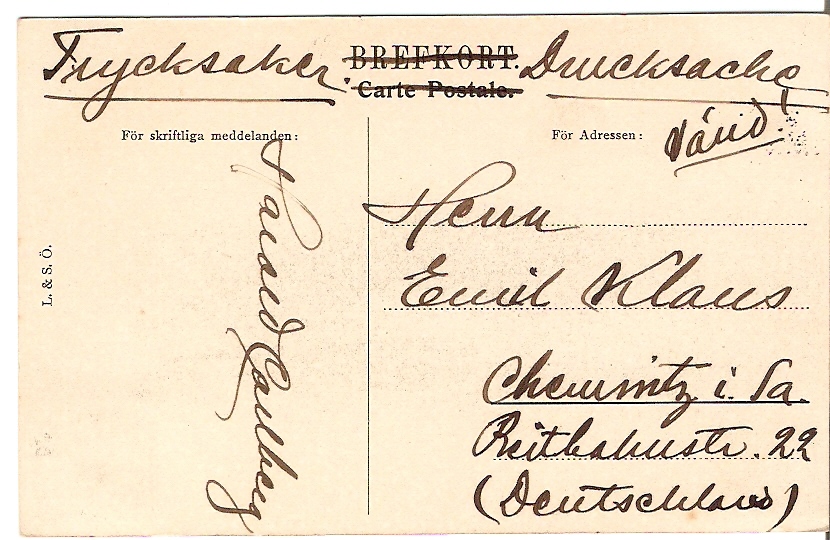 Trycksaker. BREFKORT. Drucksache
Carte Postale.
Vänd!
För skriftliga meddelanden:
För Adressen:
Harald Carlberg
L. & S. Ö.
Herrn
Emil Klaus
Chemnitz i. Sa.
Reitbahnstr. 22
(Deutschland)